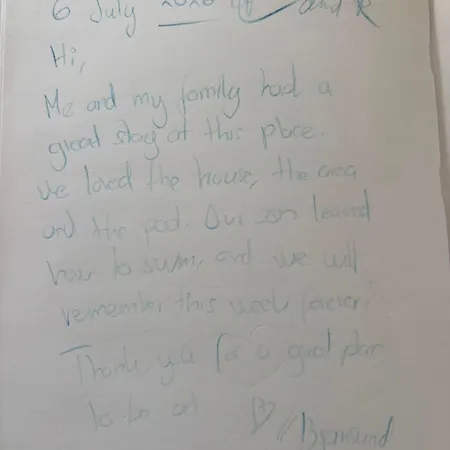 6 July 2020 and R
Hi,
Me and my family had a
great stay at this place.
We loved the house, the area
and the pool. Our son learned
how to swim, and we will
remember this week forever!
Thank you for a great place
to be at ♡ //